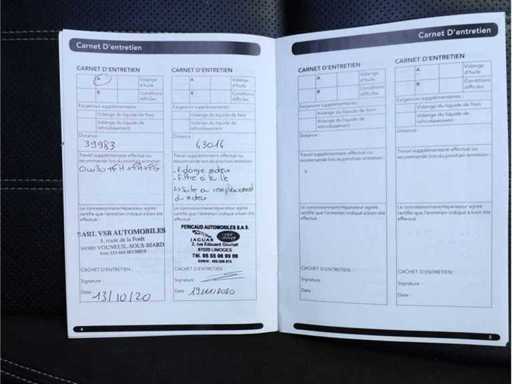 Carnet D'entretien
CARNET D'ENTRETIEN
A
Vidange d'huile
B
Conditions difficiles
Exigences supplémentaires :
Vidange du liquide de frein
Vidange du liquide de refroidissement
Distance :
39983
Travail supplémentaire effectué ou recommandé lors du prochain entretien :
Le concessionnaire/réparateur agréé certifie que l'entretien indiqué a bien été effectué
SARL VSR AUTOMOBILES
5, route de la Forêt
CACHET D'ENTRETIEN
Signature :
Date : 13/10/20
CARNET D'ENTRETIEN
A
Vidange d'huile
B
Conditions difficiles
Exigences supplémentaires :
Vidange du liquide de frein
Vidange du liquide de refroidissement
Distance :
43016
Travail supplémentaire effectué ou recommandé lors du prochain entretien :
- Vidange moteur
Suite au remplacement
du moteur
Le concessionnaire/réparateur agréé certifie que l'entretien indiqué a bien été effectué
PERICAUD AUTOMOBILES S.A.S.
JAGUAR
2, rue Edouard
LIMOGES
CACHET D'ENTRETIEN
Signature :
Date :
4
Carnet D'entretien
CARNET D'ENTRETIEN
A
Vidange d'huile
B
Conditions difficiles
Exigences supplémentaires :
Vidange du liquide de frein
Vidange du liquide de refroidissement
Distance :
Travail supplémentaire effectué ou recommandé lors du prochain entretien :
Le concessionnaire/réparateur agréé certifie que l'entretien indiqué a bien été effectué
CACHET D'ENTRETIEN
Signature :
Date :
CARNET D'ENTRETIEN
A
Vidange d'huile
B
Conditions difficiles
Exigences supplémentaires :
Vidange du liquide de frein
Vidange du liquide de refroidissement
Distance :
Travail supplémentaire effectué ou recommandé lors du prochain entretien :
Le concessionnaire/réparateur agréé certifie que l'entretien indiqué a bien été effectué
CACHET D'ENTRETIEN
Signature :
Date :
5